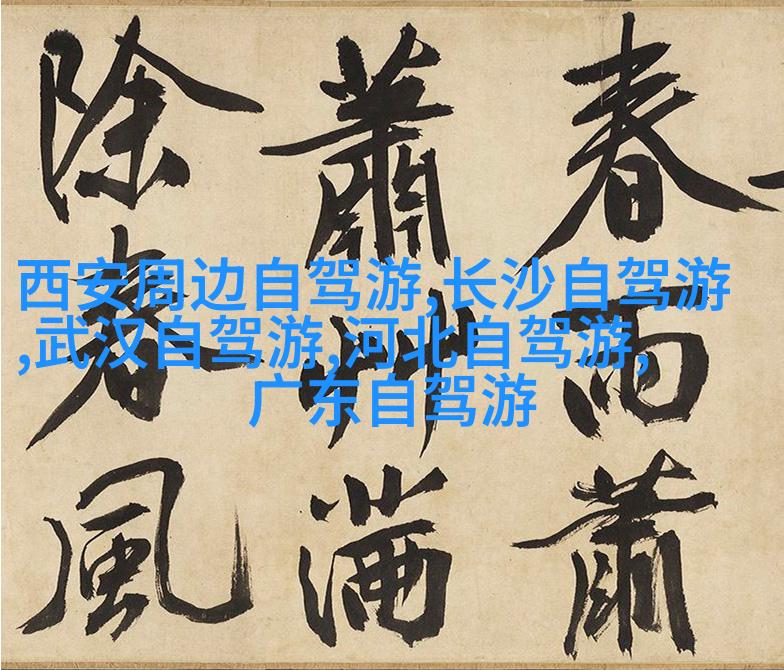 春雨蕭
蕭艸滿
除春風
西安周边自驾游,长沙自驾游
,武汉自驾游,河北自驾游,
广东自驾游